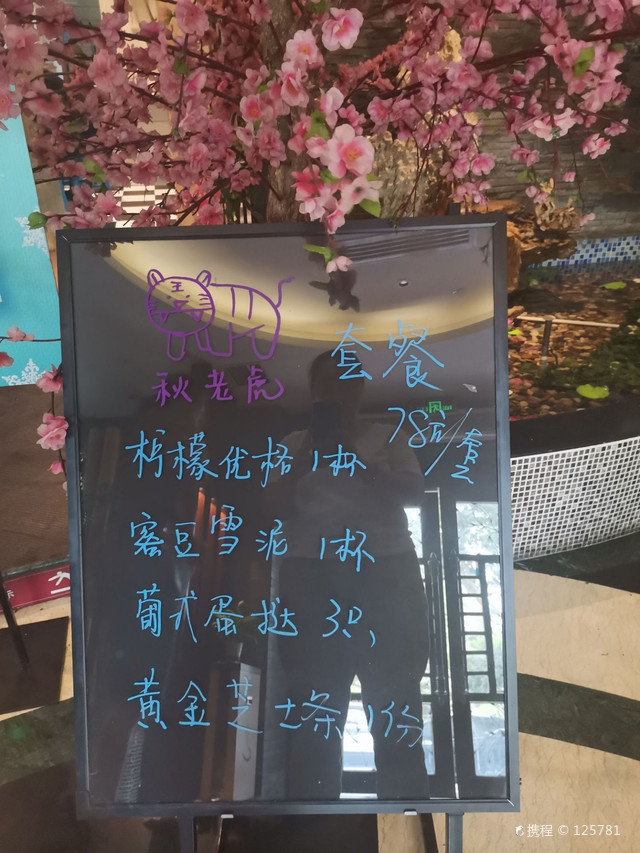 王
秋老虎
套餐
78元/套
柠檬优格1杯
密豆雪泥 1杯
葡式蛋挞 3只,
黄金芝士条1份
携程 © 125781